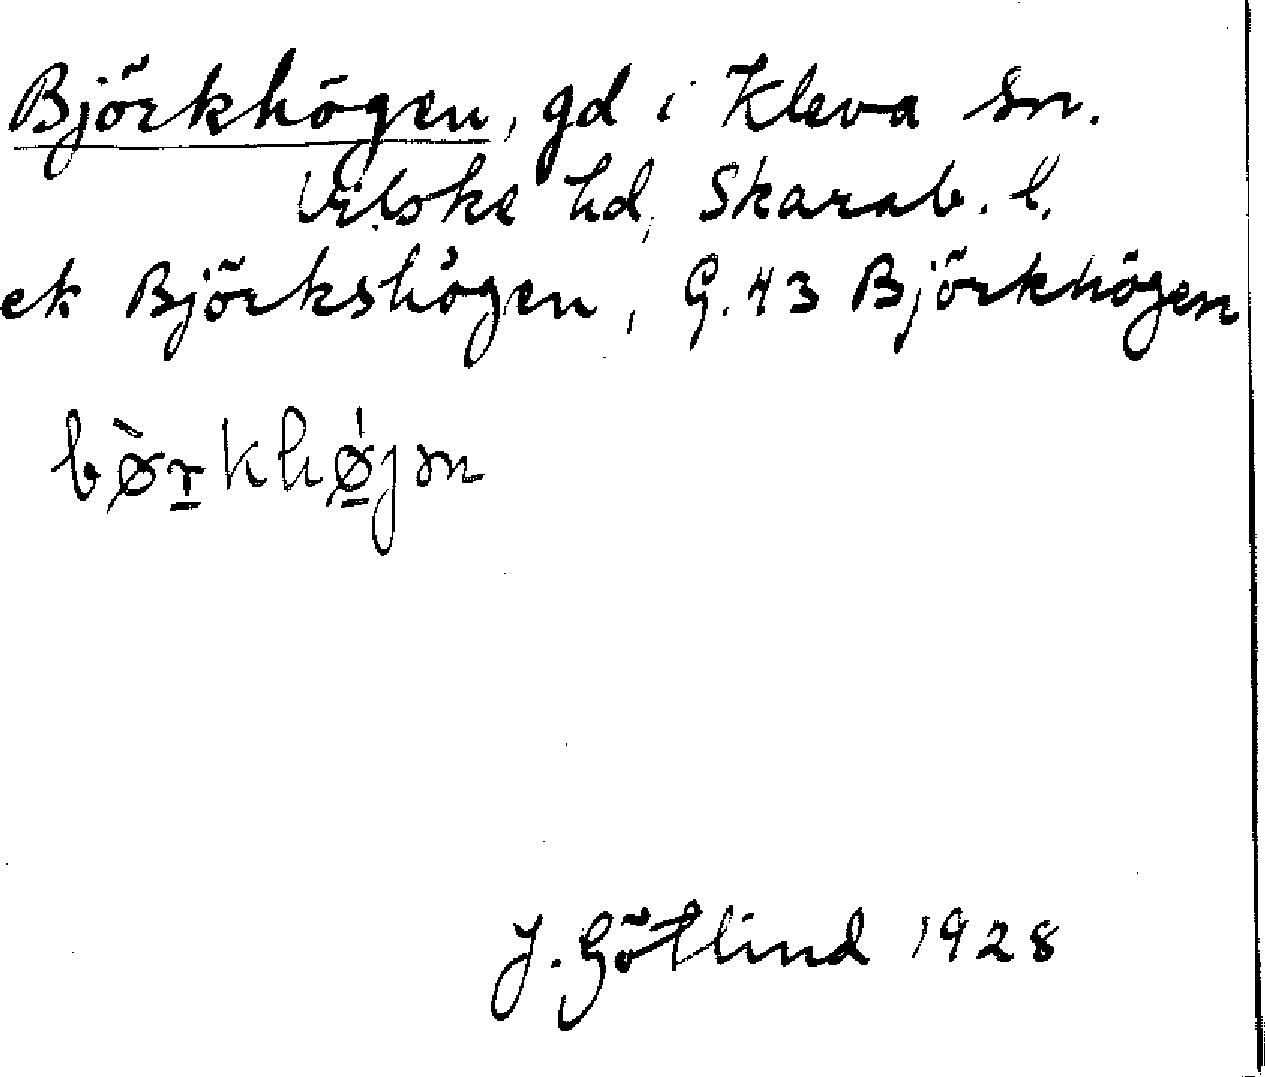 Björkhögen, gd i Kleva sn.
Vilske hd, Skarab. l.
ek Björkshögen, G. 43 Björkhögen
bø̀r̲khǿ̲jən
J. Götlind 1928